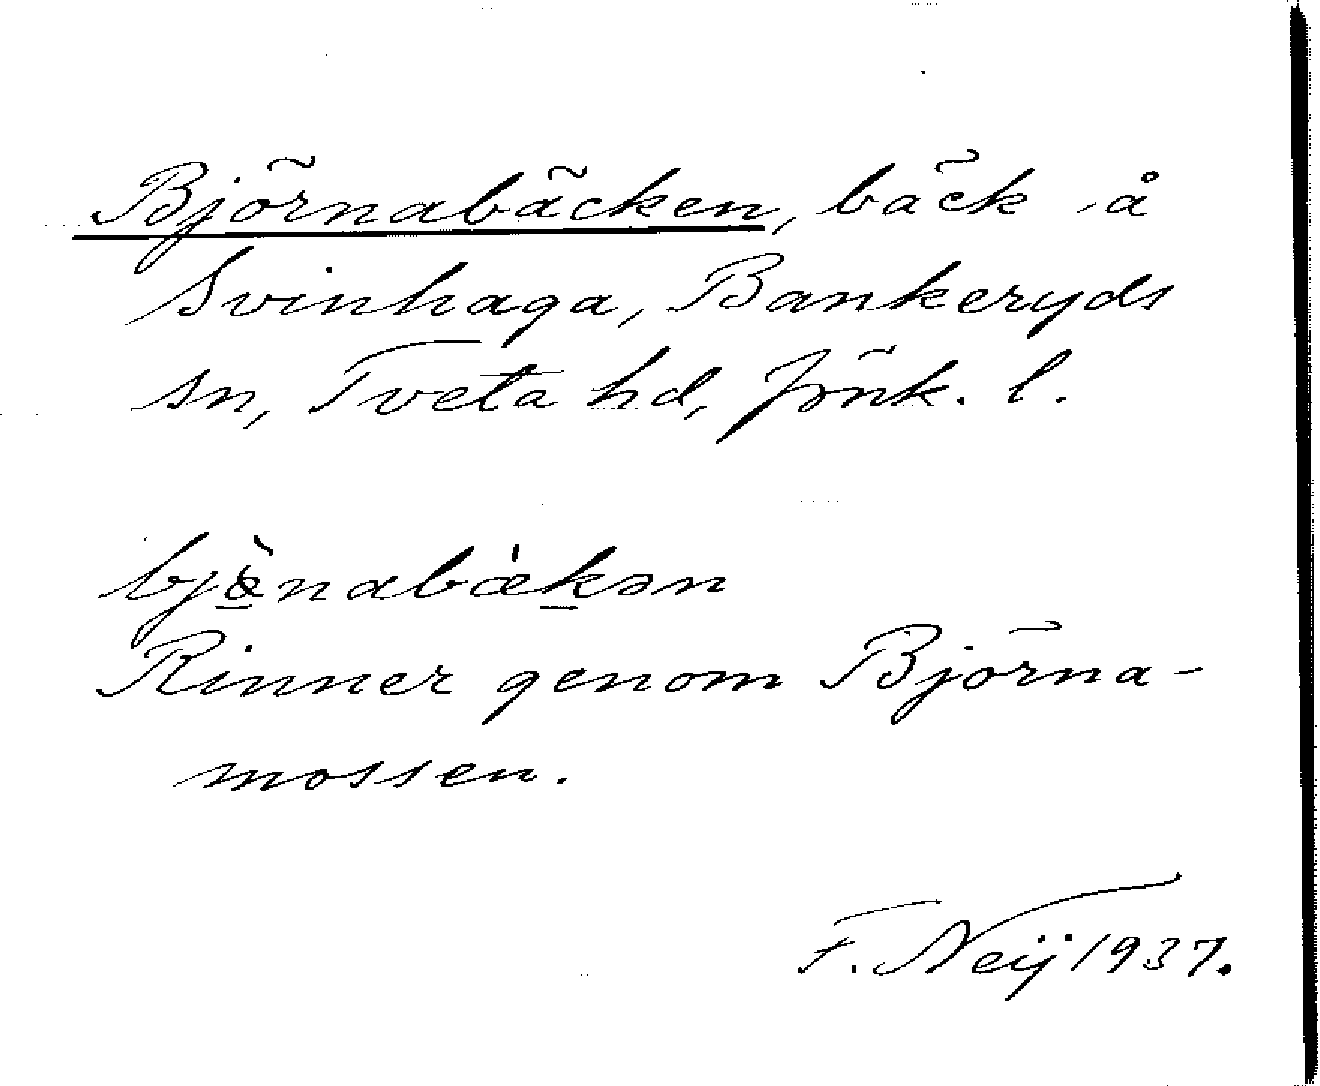 Björnabäcken, bäck å
Svinhaga, Bankeryds
sn, Tveta hd, Jönk. l.
bjæ̠̀nabæ̍k̠ən
Rinner genom Björna-
mossen.
F. Neij 1937.